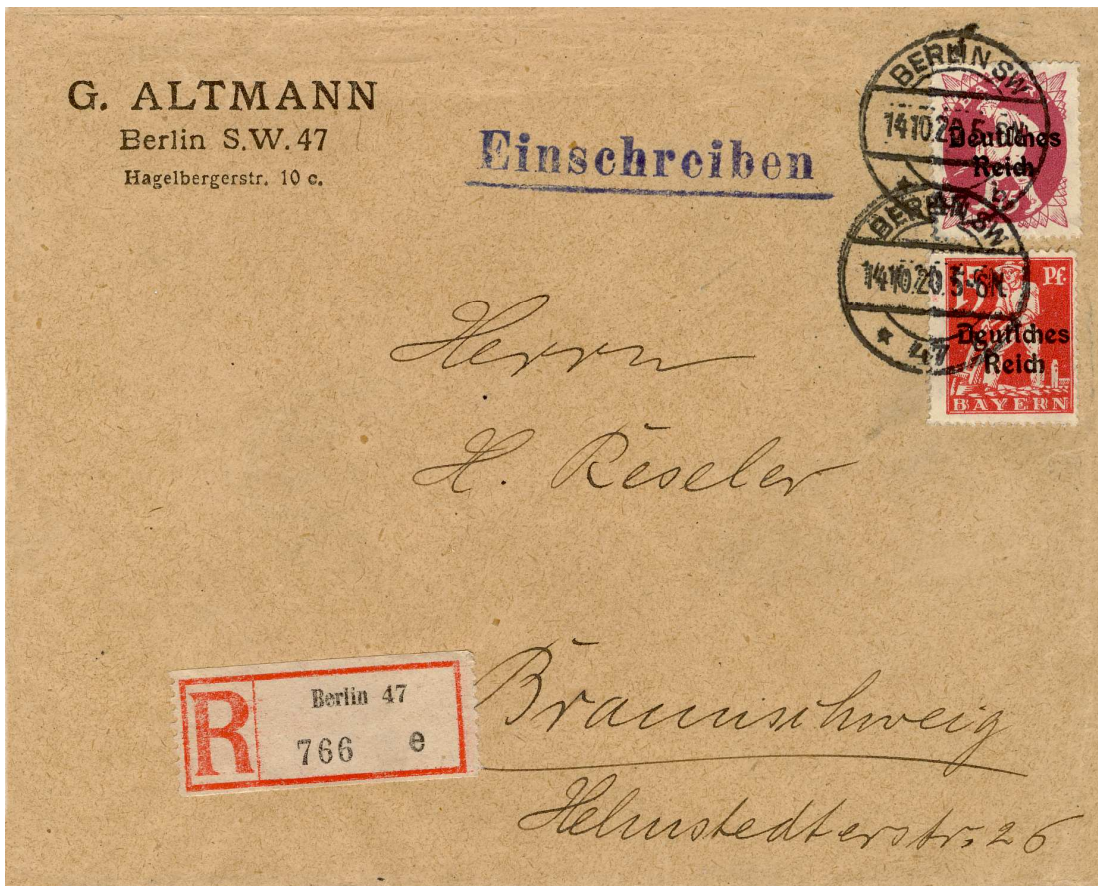 G. ALTMANN
Berlin S.W. 47
Hagelbergerstr. 10 c.
Einschreiben
BERLIN SW
14.10.20. 5-6N.
Deutsches
Reich
BERLIN SW
14.10.20. 5-6N.
* 47
Pf.
Deutsches
Reich
BAYERN
Herrn
H. Reseler
Braunschweig
Helmstedterstr. 26
R
Berlin 47
766 e